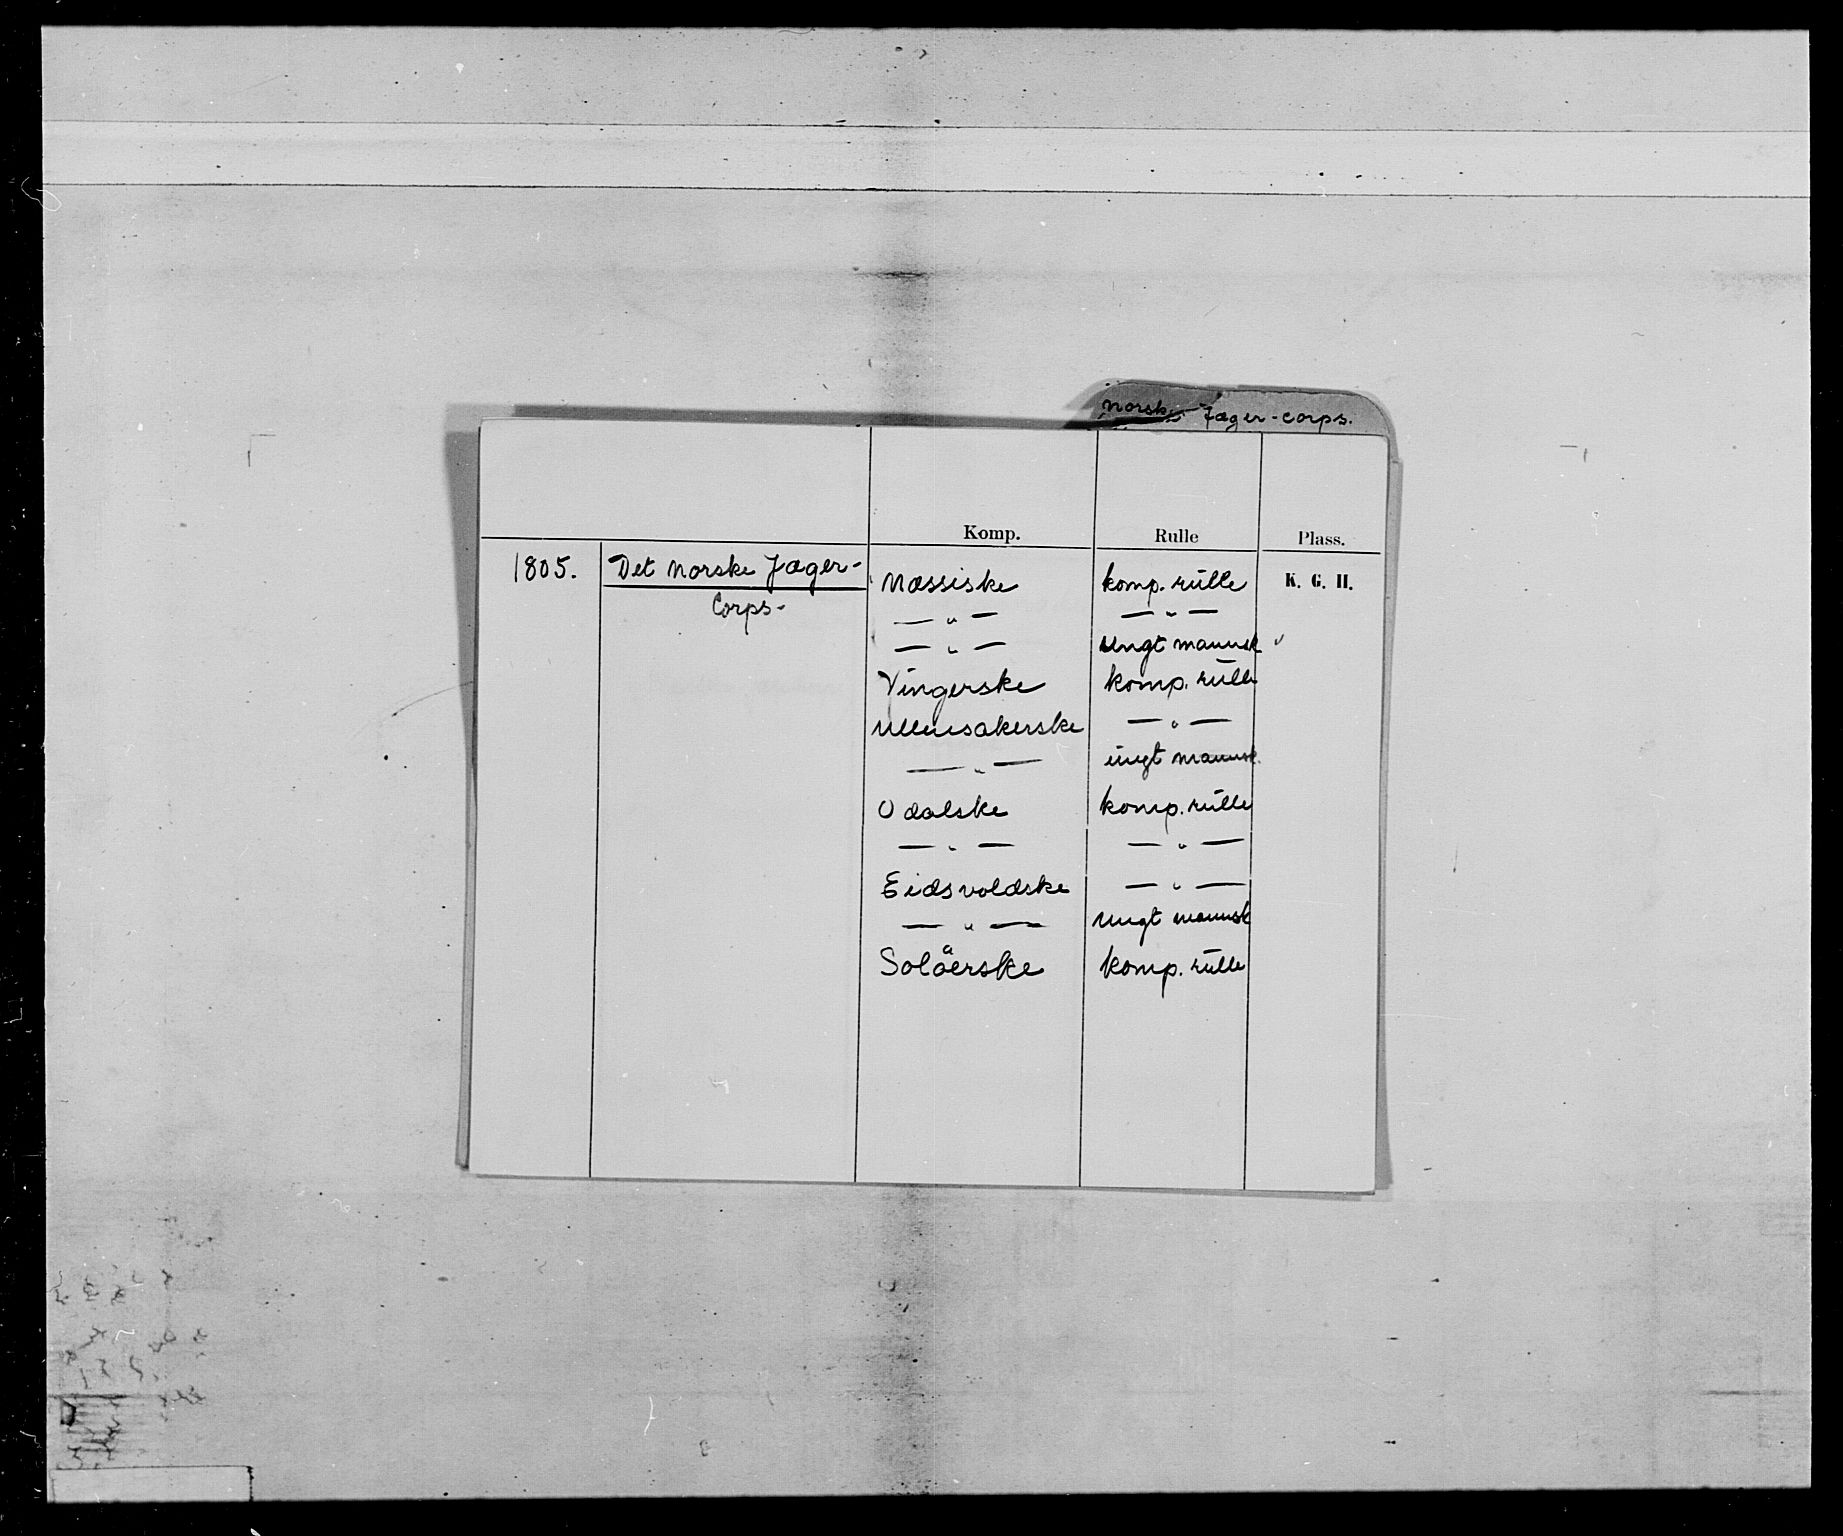 Norske Jæger-corps.
Komp. Rulle Plass.
1805. Det Norske Jæger- Næssiske komp. rulle K. G. H.
Corps- — " — — " —
— " — Ungt mannsk "
Vingerske komp. rulle
Ullensakerske — " —
— " — ungt mannsk.
Odalske komp. rulle
— " — — " —
Eidsvoldske — " —
— " — ungt mannsk
Solöerske komp. rulle